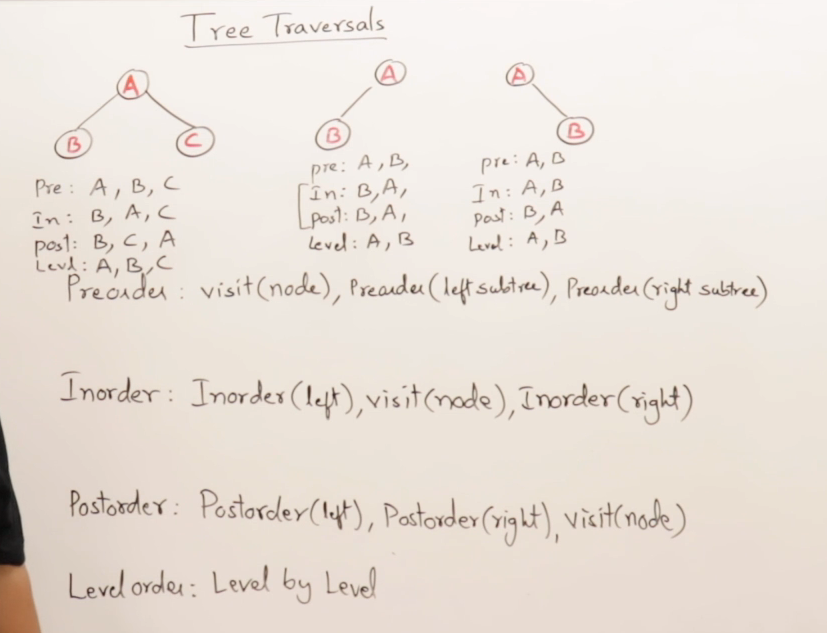 Tree Traversals
A
B
C
Pre: A, B, C
In: B, A, C
post: B, C, A
Levl: A, B, C
A
B
pre: A, B,
In: B, A,
post: B, A,
Level: A, B
A
B
pre: A, B
In: A, B
post: B, A
Level: A, B
Preorder: visit(node), Preorder(left subtree), Preorder(right subtree)
Inorder: Inorder(left), visit(node), Inorder(right)
Postorder: Postorder(left), Postorder(right), visit(node)
Level order: Level by Level